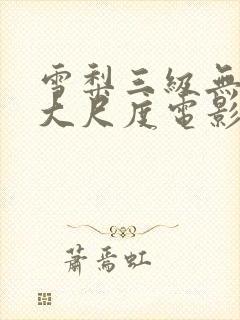 雪梨三級無
大尺度電影
蕭焉虹